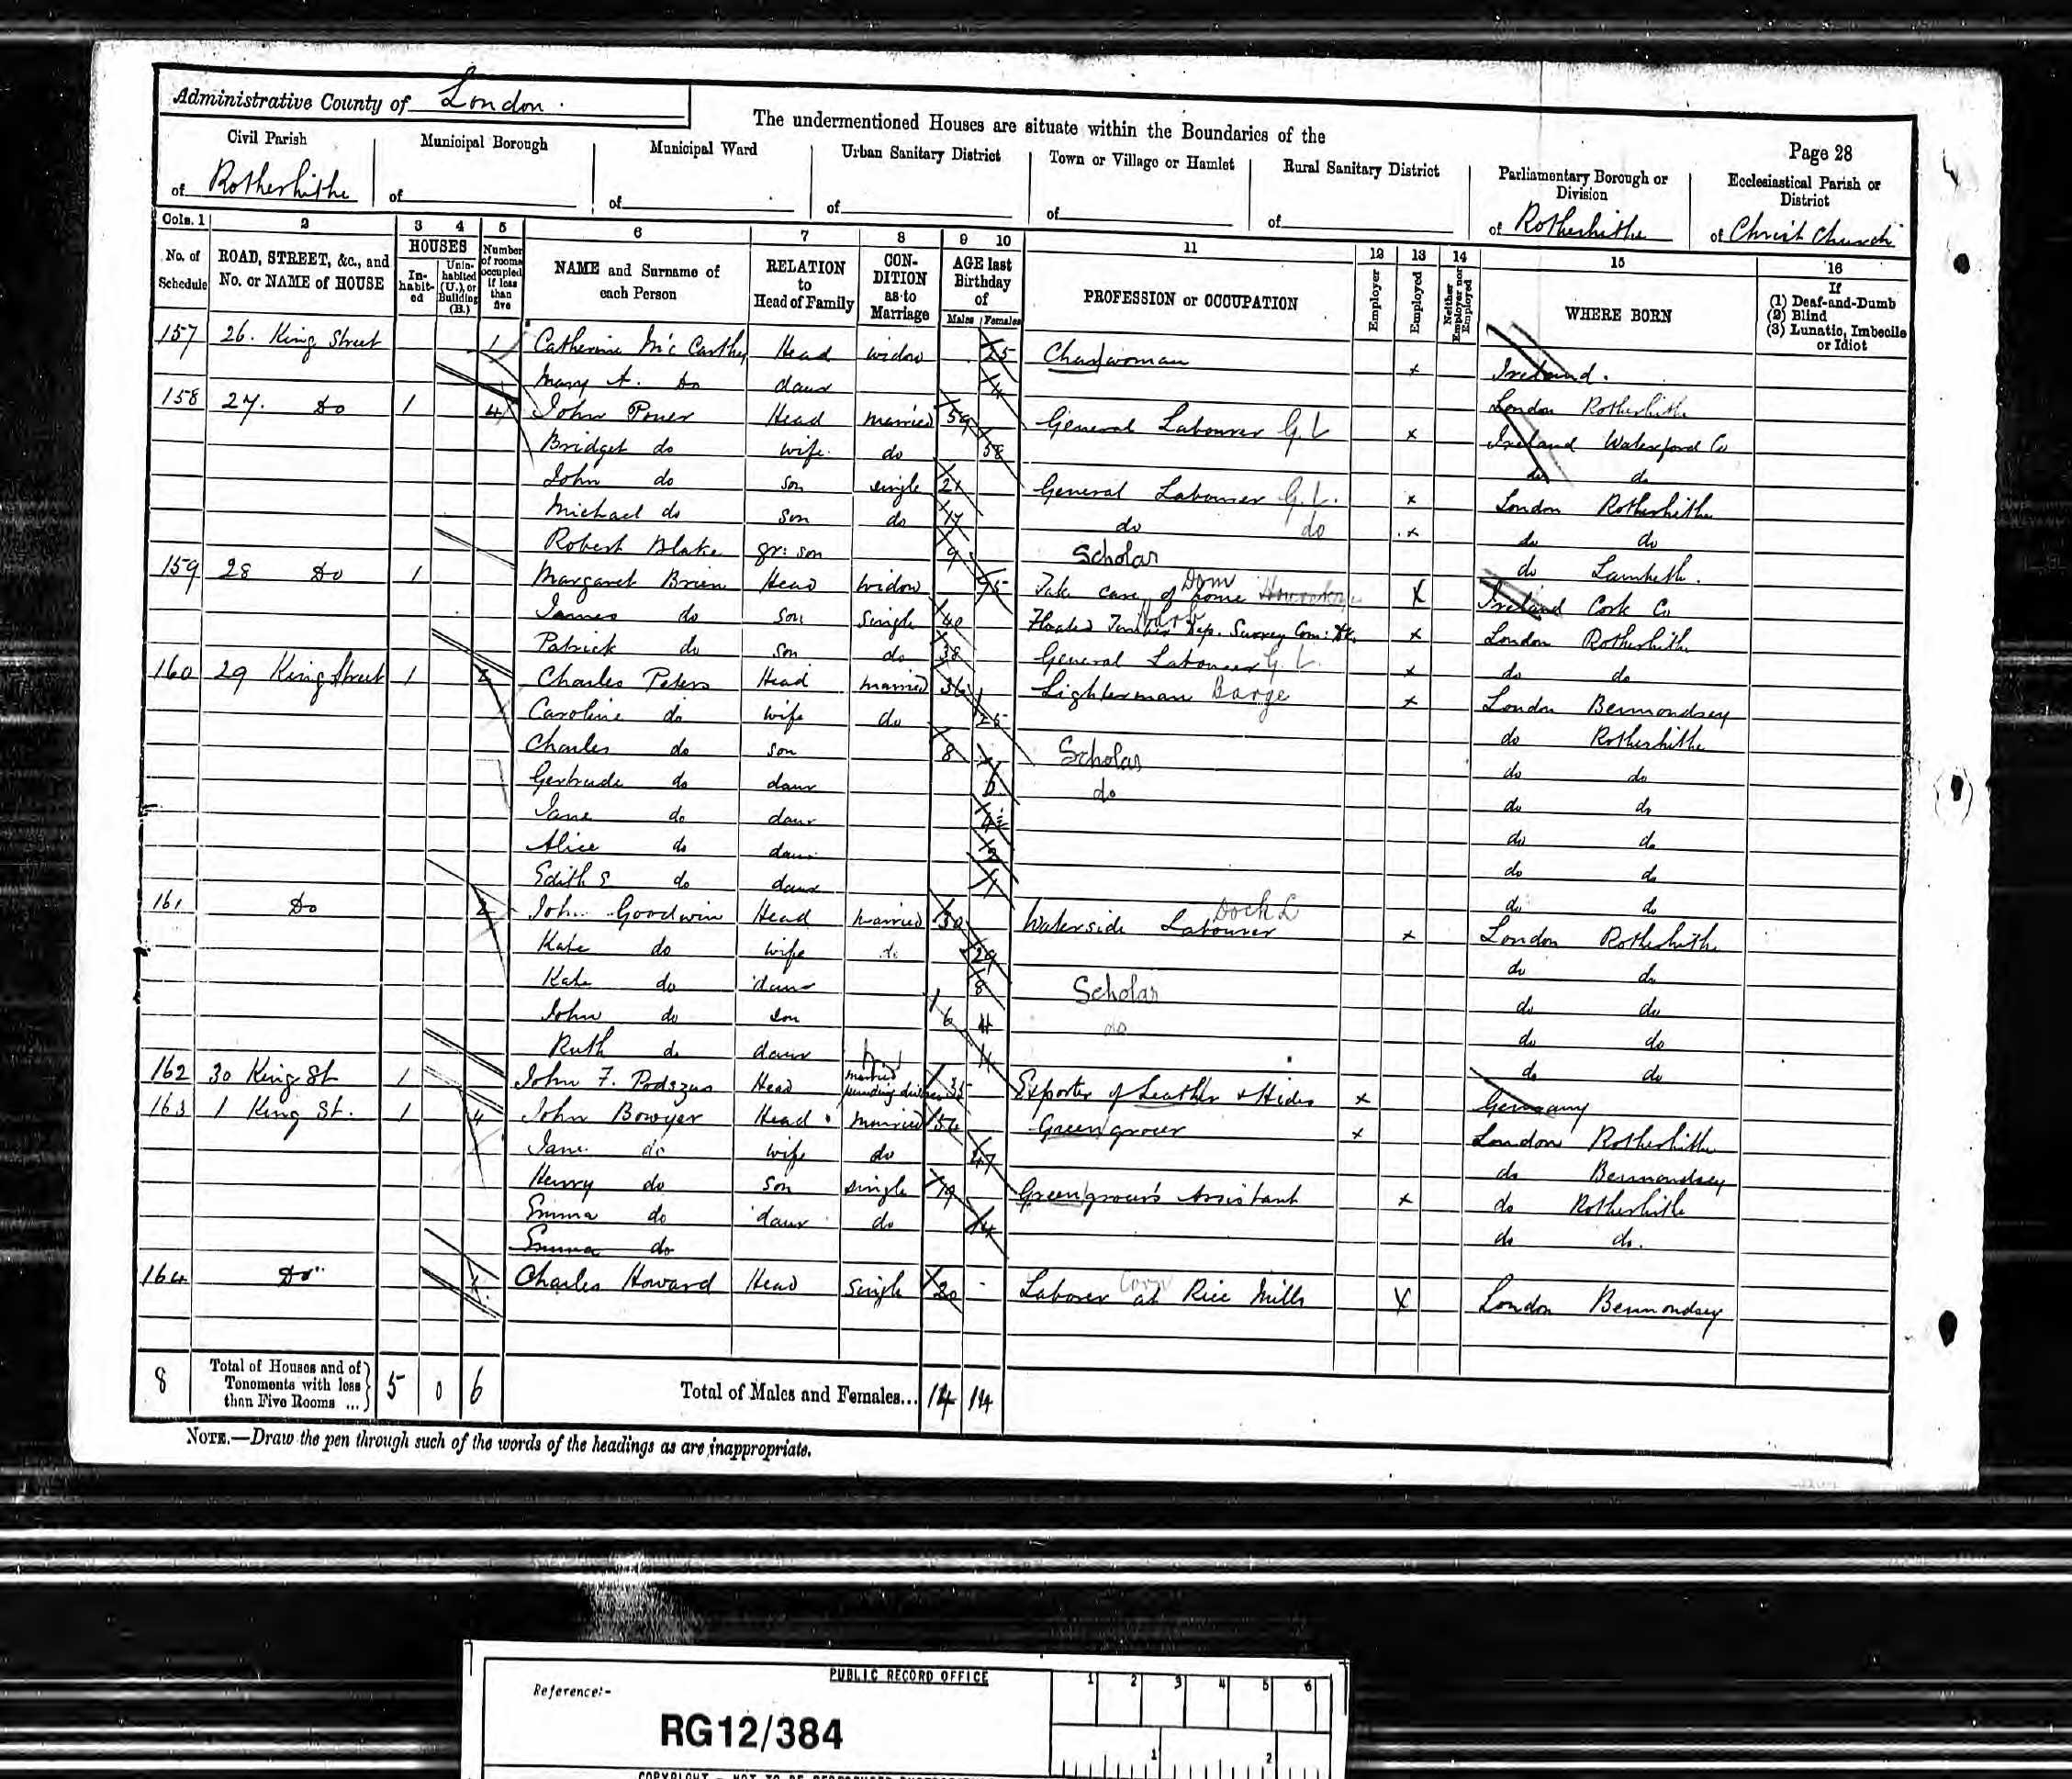 Administrative County of London.
The undermentioned Houses are situate within the Boundaries of the
Page 28
Civil Parish of Rotherhithe
Municipal Borough of
Municipal Ward of
Urban Sanitary District of
Town or Village or Hamlet of
Rural Sanitary District of
Parliamentary Borough or Division of Rotherhithe
Ecclesiastical Parish or District of Christ Church
Cols. 1 2 3 4 5 6 7 8 9 10 11 12 13 14 15 16
No. of Schedule
ROAD, STREET, &c., and No. or NAME of HOUSE
HOUSES
In-habit-ed
Unin-habited (U.), or Building (B.)
Number of rooms occupied if less than five
NAME and Surname of each Person
RELATION to Head of Family
CON-DITION as to Marriage
AGE last Birthday of
Males Females
PROFESSION or OCCUPATION
Employer
Employed
Neither Employer nor Employed
WHERE BORN
If (1) Deaf-and-Dumb (2) Blind (3) Lunatic, Imbecile or Idiot
157 26. King Street 1 Catherine McCarthy Head widow Charwoman x Ireland.
Mary A. Do daur 4 London Rotherhithe
158 27. Do 1 4 John Power Head Married 59 General Labourer G.L x Ireland Waterford Co
Bridget do wife do 58 do do
John do son single 21 General Labourer G.L. x London Rotherhithe
Michael do son do 17 do do x do do
Robert Blake gr: son 9 Scholar do Lambeth.
159 28 Do 1 Margaret Brien Head Widow Take care of home Dom X Ireland Cork Co
James do son single 40 x London Rotherhithe
Patrick do son do 38 General Labourer G.L. x do do
160 29 King Street 1 2 Charles Peters Head married 36 Lighterman Barge x London Bermondsey
Caroline do wife do do Rotherhithe
Charles do son 8 Scholar do do
Gertrude do daur do do do
Jane do daur do do
Alice do daur do do
Edith E do daur 1 do do
161 Do 2 John Goodwin Head Married 30 Waterside Labourer Dock L x London Rotherhithe
Kate do wife do 29 do do
Kate do daur 8 Scholar do do
John do son 6 do do do
Ruth do daur do do
162 30 King St 1 John F. Podszus Head married 35 Exporter of Leather & Hides x Germany
163 1 King St. 1 4 John Bowyer Head married 54 Greengrocer x London Rotherhithe
Jane do wife do 47 do Bermondsey
Henry do son single 19 Greengrocer's Assistant x do Rotherhithe
Emma do daur do 14 do do.
Emma do
164 Do Charles Howard Head Single 20 Laborer at Rice Mills Corn X London Bermondsey
8 Total of Houses and of Tenements with less than Five Rooms ... 5 0 6 Total of Males and Females... 14 14
NOTE.—Draw the pen through such of the words of the headings as are inappropriate.
PUBLIC RECORD OFFICE
1 2 3 4 5 6
Reference:-
RG12/384
1 2